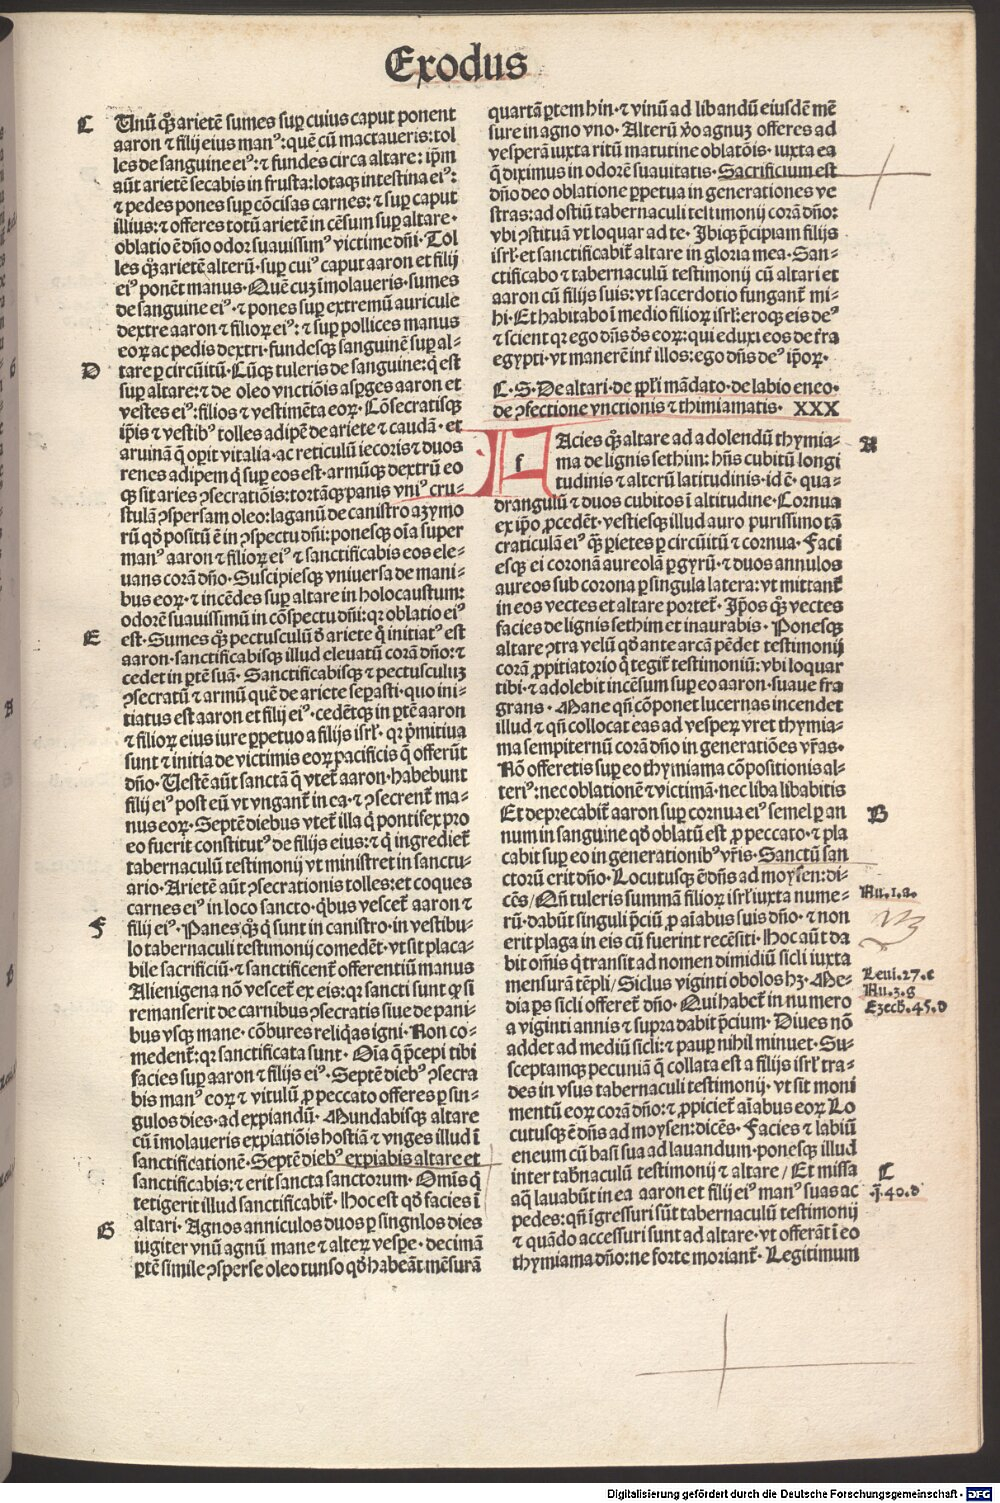 Exodus
C
Unū qꝫ arietē sumes suꝑ cuius caput ponent
aaron ⁊ filij eius manꝰ: quē cū mactaueris: tol
les de sanguine eiꝰ: ⁊ fundes circa altare: ip̄m
aūt arietē secabis in frusta: lotaqꝫ intestina eiꝰ:
⁊ pedes pones suꝑ cōcisas carnes: ⁊ suꝑ caput
illius: ⁊ offeres totū arietē in cēsum suꝑ altare·
oblatio ē dn̄o odor suauissimꝰ victime dn̄i· Tol
les qꝫ arietē alterū· suꝑ cuiꝰ caput aaron et filij
eiꝰ ponēt manus· Quē cuꝫ īmolaueris· sumes
de sanguine eiꝰ· ⁊ pones suꝑ extremū auricule
dextre aaron ⁊ filioꝝ eiꝰ: ⁊ suꝑ pollices manus
eoꝝ ac pedis dextri· fundesqꝫ sanguinē suꝑ al-
D
tare ꝑ circūitū· Cūqꝫ tuleris de sanguine: q̄ est
suꝑ altare: ⁊ de oleo vnctiōis aspges aaron et
vestes eiꝰ: filios ⁊ vestimēta eoꝝ· Cōsecratisqꝫ
ip̄is ⁊ vestibꝰ tolles adipē de ariete ⁊ caudā· et
aruinā q̄ oꝑit vitalia· ac reticulū iecoris ⁊ duos
renes adipem q̄ suꝑ eos est· armūqꝫ dextrū eo
qꝫ sit aries ꝯsecratiōis: tortāqꝫ panis vniꝰ cru-
stulā ꝯspersam oleo: laganū de canistro azymo
rū qd̄ positū ē in ꝯspectu dn̄i: ponesqꝫ oīa super
manꝰ aaron ⁊ filioꝝ eiꝰ ⁊ sanctificabis eos ele-
uans corā dn̄o· Suscipiesqꝫ vniuersa de mani-
bus eoꝝ· ⁊ incēdes suꝑ altare in holocaustum:
odorē suauissimū in cōspectu dn̄i: qꝛ oblatio eiꝰ
E
est· Sumes qꝫ pectusculū d̄ ariete q̄ initiatꝰ est
aaron· sanctificabisqꝫ illud eleuatū corā dn̄o: ⁊
cedet in ꝑtē suā· Sanctificabisqꝫ ⁊ pectusculuꝫ
ꝯsecratū ⁊ armū quē de ariete seꝑasti· quo ini-
tiatus est aaron et filij eiꝰ· cedētqꝫ in ꝑtē aaron
⁊ filioꝝ eius iure ꝑpetuo a filijs isrl̄· qꝛ p̄mitiua
sunt ⁊ initia de victimis eoꝝ pacificis q̄ offerūt
dn̄o· Uestē aūt sanctā q̄ vtet̄ aaron· habebunt
filij eiꝰ post eū vt vngant̄ in ea· ⁊ ꝯsecrent̄ ma-
nus eoꝝ· Septē diebus vtet̄ illa q̄ pontifex pro
eo fuerit constitutꝰ de filijs eius: ⁊ q̄ ingrediet̄
tabernaculū testimonij vt ministret in sanctu-
ario· Arietē aūt ꝯsecrationis tolles: et coques
carnes eiꝰ in loco sancto· qbus vescet̄ aaron ⁊
F
filij eiꝰ· Panes qꝫ q̄ sunt in canistro· in vestibu-
lo tabernaculi testimonij comedēt· vt sit placa-
bile sacrificiū· ⁊ sanctificent̄ offerentiū manus
Alienigena nō vescet̄ ex eis: qꝛ sancti sunt ꝙ si
remanserit de carnibus ꝯsecratis siue de pani-
bus vsqꝫ mane· cōbures reliq̄as igni· Non co-
medent̄: qꝛ sanctificata sunt· Oīa q̄ p̄cepi tibi
facies suꝑ aaron ⁊ filijs eiꝰ· Septē diebꝰ ꝯsecra
bis manꝰ eoꝝ ⁊ vitulū ꝓ peccato offeres ꝑ sin-
gulos dies· ad expiandū· Mundabisqꝫ altare
cū īmolaueris expiatiōis hostiā ⁊ vnges illud ī
sanctificationē· Septē diebꝰ expiabis altare et
sanctificabis: ⁊ erit sancta sanctorum· Omīs q̄
tetigerit illud sanctificabit̄· Hoc est qd̄ facies ī
G
altari· Agnos anniculos duos ꝑ singnlos dies
iugiter vnū agnū mane ⁊ alteꝝ vesꝑe· decimā
ꝑtē simile ꝯsperse oleo tunso qd̄ habeāt mēsurā
quartā ꝑtem hin· ⁊ vinū ad libandū eiusdē mē
sure in agno vno· Alterū v̄o agnuꝫ offeres ad
vesperā iuxta ritū matutine oblatōis· iuxta ea
q̄ diximus in odorē suauitatis· Sacrificium est
dn̄o deo oblatione ꝑpetua in generationes ve
stras: ad ostiū tabernaculi testimonij corā dn̄o:
vbi ꝯstituā vt loquar ad te· Ibiqꝫ p̄cipiam filijs
isrl̄· et sanctificabit̄ altare in gloria mea· San-
ctificabo ⁊ tabernaculū testimonij cū altari et
aaron cū filijs suis: vt sacerdotio fungant̄ mi-
hi· Et habitabo ī medio filioꝝ isrl̄: eroqꝫ eis deꝰ
⁊ scient qꝛ ego dn̄s d̄s eoꝝ: qui eduxi eos de t̄ra
egypti· vt manerē int̄ illos: ego dn̄s deꝰ ip̄oꝝ·
C· S· De altari· de ppl̄i mādato· de labio eneo·
de ꝯfectione vnctionis ⁊ thimiamatis· XXX
A
fAcies qꝫ altare ad adolendū thymia-
ma de lignis sethim: hn̄s cubitū longi
tudinis ⁊ alterū latitudinis· id ē· qua-
drangulū ⁊ duos cubitos ī altitudine· Cornua
ex ip̄o ꝓcedēt· vestiesqꝫ illud auro purissimo tā
craticulā eiꝰ qꝫ ꝑietes ꝑ circūitū ⁊ cornua· Faci
esqꝫ ei coronā aureolā ꝑ gyrū· ⁊ duos annulos
aureos sub corona ꝑ singula latera: vt mittant̄
in eos vectes et altare portet̄· Ip̄os qꝫ vectes
facies de lignis sethim et inaurabis· Ponesqꝫ
altare ꝯtra velū qd̄ ante arcā pēdet testimonij
corā ꝓpitiatorio q̄ tegit̄ testimoniū: vbi loquar
tibi· ⁊ adolebit incēsum suꝑ eo aaron· suaue fra
grans· Mane qn̄ cōponet lucernas incendet
illud ⁊ qn̄ collocat eas ad vesꝑeꝝ vret thymia-
ma sempiternū corā dn̄o in generatiōes vr̄as·
Nō offeretis suꝑ eo thymiama cōpositionis al-
teriꝰ: nec oblationē ⁊ victimā· nec liba libabitis
B
Et deprecabit̄ aaron suꝑ cornua eiꝰ semel ꝑ an
num in sanguine qd̄ oblatū est ꝓ peccato· ⁊ pla
cabit suꝑ eo in generationibꝰ vr̄is· Sanctū san
ctorū erit dn̄o· Locutusqꝫ ē dn̄s ad moysen: di-
cēs/ Qn̄ tuleris summā filioꝝ isrl̄ iuxta nume-
Nu.1.a.
rū· dabūt singuli p̄ciū ꝓ aīabus suis dn̄o· ⁊ non
erit plaga in eis cū fuerint recēsiti· Hoc aūt da
bit omīs q̄ transit ad nomen dimidiū sicli iuxta
mensurā tēpli/ Siclus viginti obolos hꝫ· Me-
Leui.27.c
Nu.3.g
Ezech.45.d
dia ꝑs sicli offeret̄ dn̄o· Qui habet̄ in numero
a viginti annis ⁊ supra dabit p̄cium· Diues nō
addet ad mediū sicli: ⁊ pauꝑ nihil minuet· Su-
sceptamqꝫ pecuniā q̄ collata est a filijs isrl̄ tra-
des in vsus tabernaculi testimonij· vt sit moni
mentū eoꝝ corā dn̄o: ⁊ ꝓpiciet̄ aīabus eoꝝ Lo
cutusqꝫ ē dn̄s ad moysen: dicēs· Facies ⁊ labiū
eneum cū basi sua ad lauandum· ponesqꝫ illud
inter tab̄naculū testimonij ⁊ altare/ Et missa
C
j̄.40.d
aq̄ lauabūt in ea aaron et filij eiꝰ manꝰ suas ac
pedes: qn̄ īgressuri sūt tabernaculū testimonij
⁊ quādo accessuri sunt ad altare· vt offerāt ī eo
thymiama dn̄o: ne forte moriant̄· Legitimum
Digitalisierung gefördert durch die Deutsche Forschungsgemeinschaft · DFG